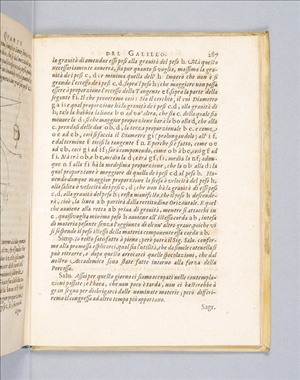 DEL GALILEO. 289
la gravità di amendue essi pesi alla gravità del peso h. Mà questo
necessariamente avverrà, sia pur quanto si voglia, massima la gravità
de i pesi c, d, e minima quella dell' h. Imperò che non è sì
grande l'eccesso de i pesi c, d, sopra'l peso h; che maggiore non possa
essere à proporzione l'eccesso della Tangente e f sopra la parte della
segante f i. Il che proveremo così: Sia il cerchio, il cui Diametro
ga; e qual proporzione hà la gravità de i pesi c, d, alla gravità di
h, tale la habbia la linea bo ad un'altra, che sia c, della quale sia
minore la d, sì che maggior proporzione haverà la bo alla d, che alla
c. prendasi delle due ob, d, la terza proporzionale be, e come
oe ad eb, così si faccia il Diametro gi (prolungandolo) all' i f.
e dal termine f tirisi la tangente fn. E perche si è fatto, come oe
ad eb, così gi ad if; sarà componendo, come ob à be, così gf ad
fi. Mà trà ob e be, media la d, e trà gf, fi. media la nf, adunque
nf alla fi hà la medesima proporzione, che la ob alla d; la
qual proporzione è maggiore di quella de i pesi c, d al peso h. Havendo
dunque maggior proporzione la scesa ò velocità del peso h,
alla salita ò velocità de i pesi c, d; che non hà la gravità di essi pesi
c, d, alla gravità del peso h; resta manifesto, che il peso h descenderà,
cioè, la linea ab partirà dalla rettitudine Orizontale. E quel
che avviene alla retta ab priva di gravità, mentre si attacchi in
e, qualsivoglia minimo peso h avviene all'istessa corda ab, intesa
di materia pesante senza l'aggiunta di alcun' altro grave poiche vi
si sospende il peso istesso della materia componente essa corda ab.
Simp. Io resto satisfatto à pieno; però potrà il Sig. Salv. conforme
alla promessa esplicarci, qual sia l'utilità, che da simile catenella si
può ritrarre, e dopo questo arrecarci quelle specolazioni, che dal
nostro Accademico sono state fatte intorno alla forza della
Percossa.
Salv. Assai per questo giorno ci siamo occupati nelle contemplazioni
passate; e l'hora, che non poco è tarda, non ci basterebbe à
gran segno per disbrigarci dalle nominate materie; però differiremo
il congresso ad altro tempo più opportuno.
Sagr.